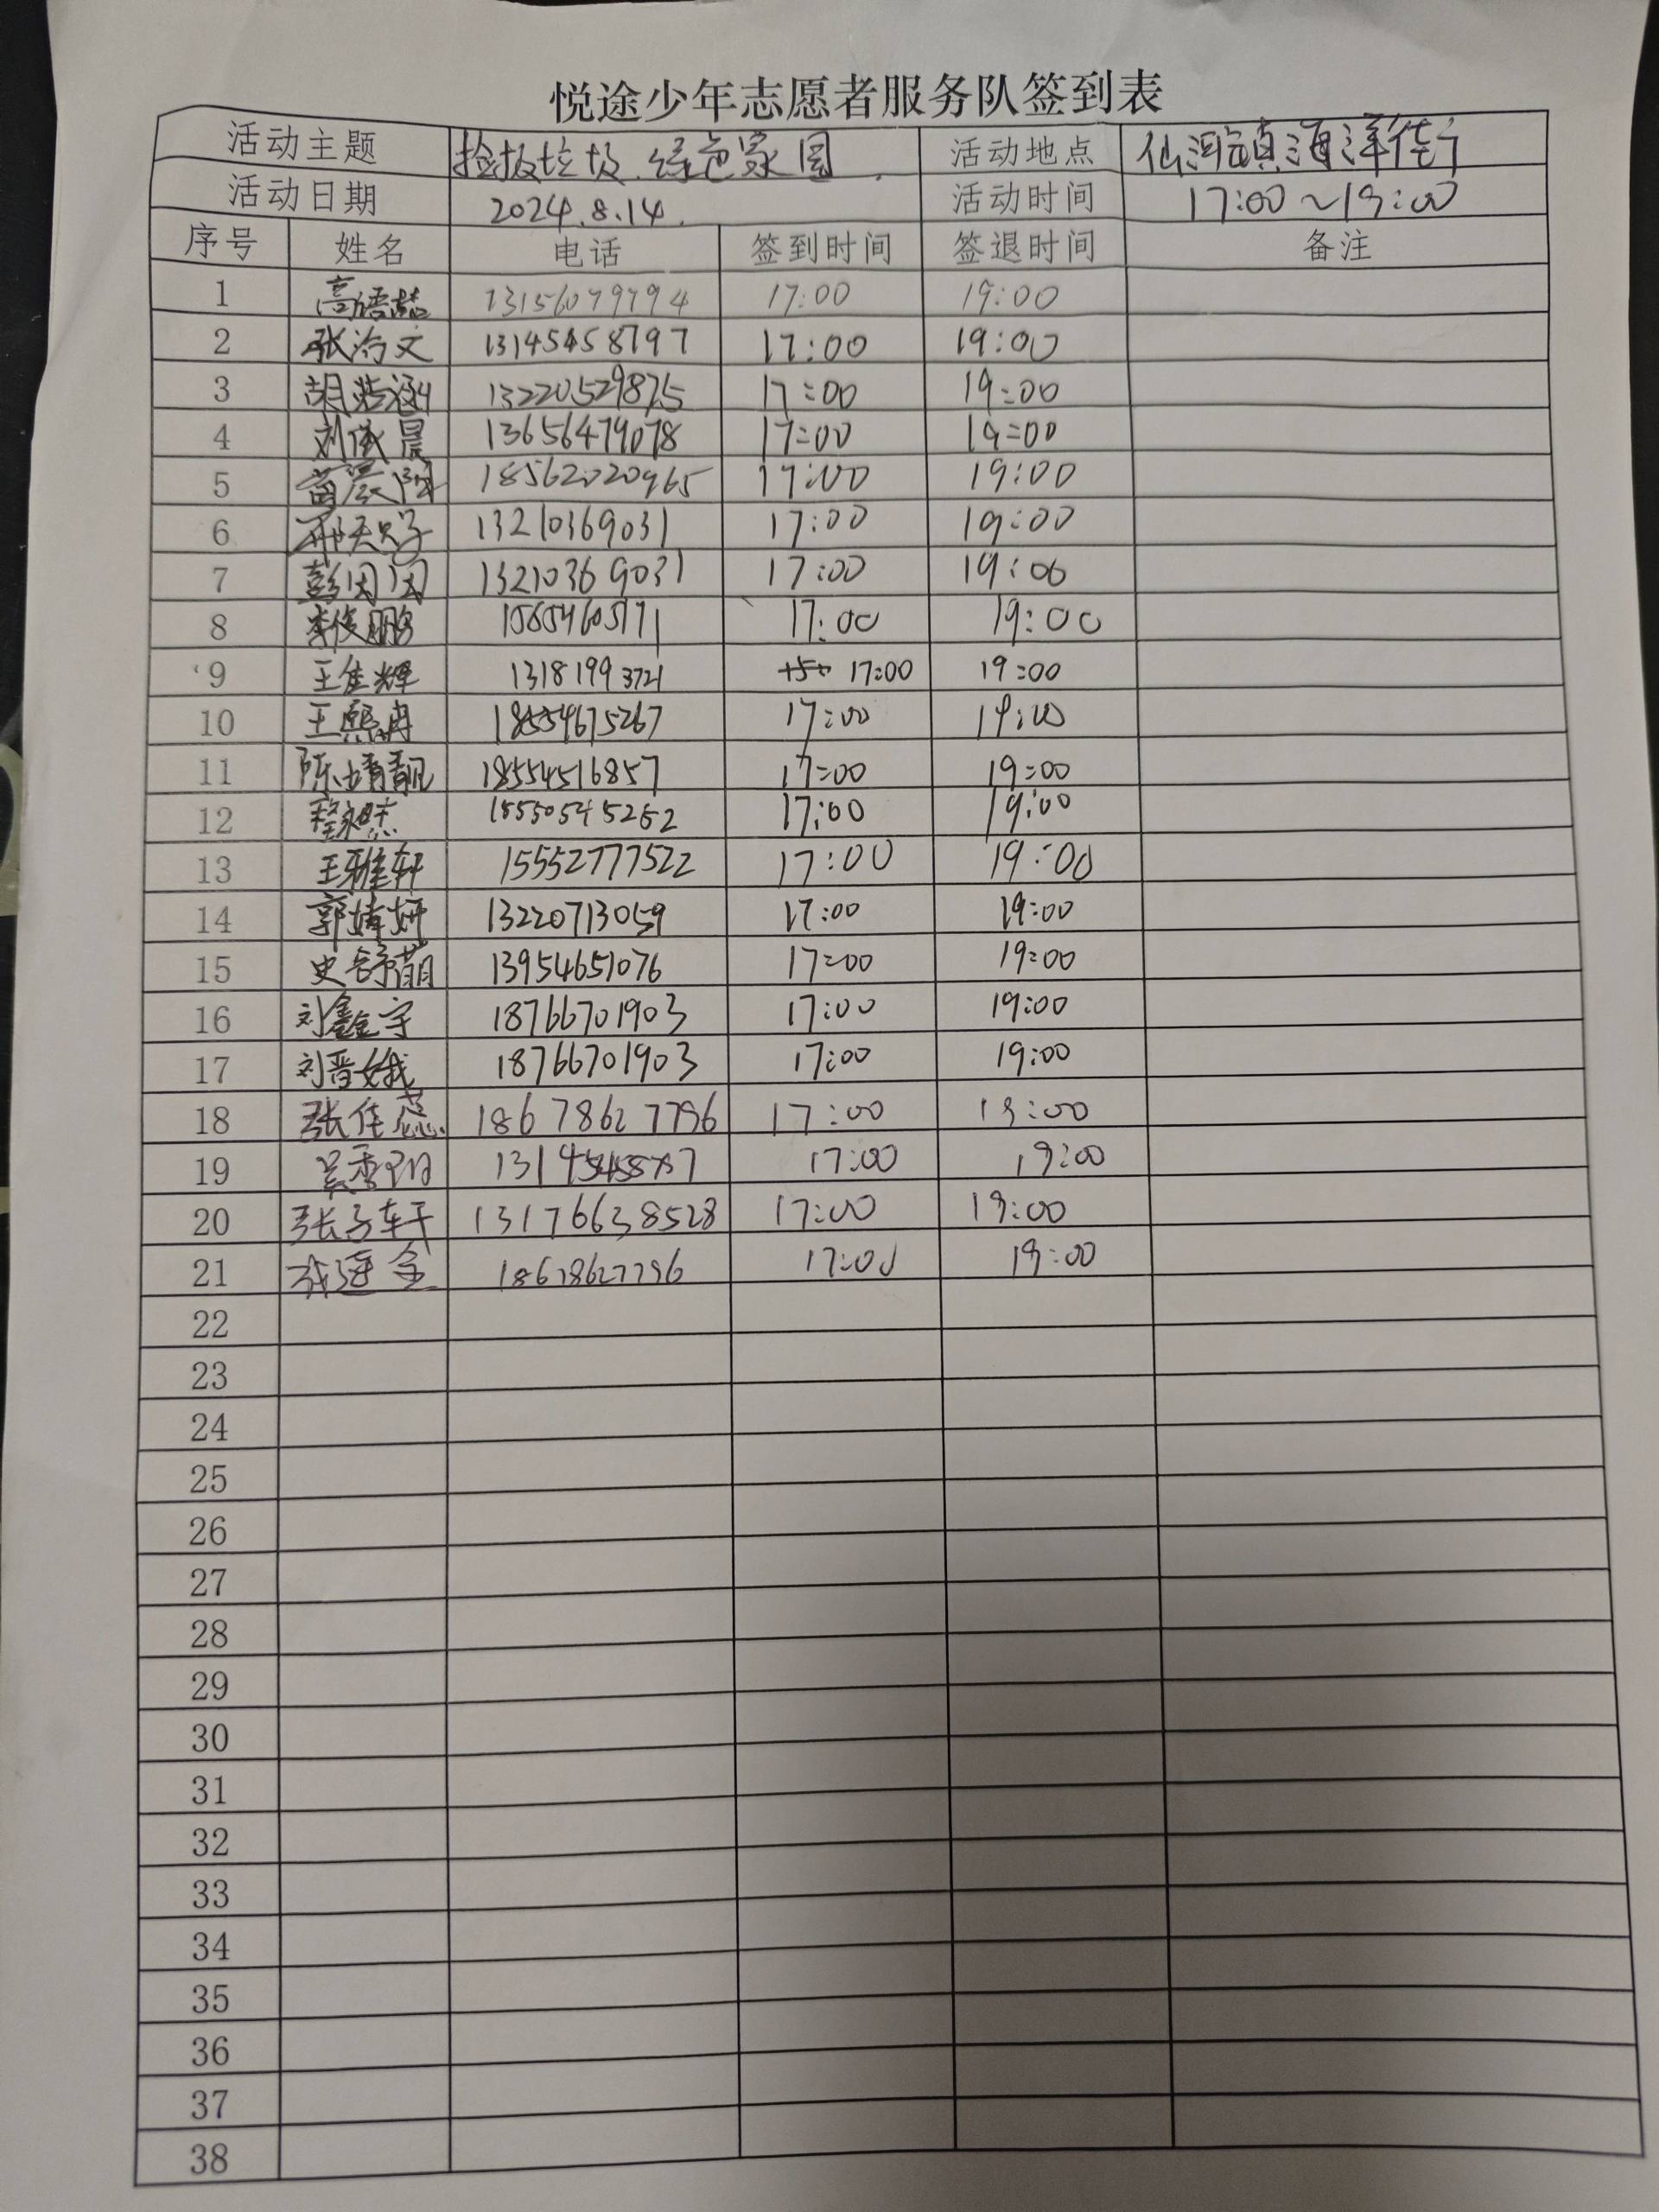 悦途少年志愿者服务队签到表
活动主题 捡拾垃圾.绿色家园. 活动地点 仙河镇海洋街
活动日期 2024.8.14. 活动时间 17:00～19:00
序号 姓名 电话 签到时间 签退时间 备注
1 高语喆 13156079794 17:00 19:00
2 张洽文 13145458797 17:00 19:00
3 胡浩涵 13220529875 17:00 19:00
4 刘晟 13656479078 17:00 19:00
5 18562020965 17:00 19:00
6 邢天 13210369031 17:00 19:00
7 彭囡囡 13210369031 17:00 19:00
8 李俊鹏 15654605171 17:00 19:00
9 王佳辉 13181993721 17:00 19:00
10 王熙冉 18554675267 17:00 19:00
11 陈婧靓 18554516857 17:00 19:00
12 程永杰 18550545252 17:00 19:00
13 王雅轩 15552777522 17:00 19:00
14 郭婧妍 13220713059 17:00 19:00
15 史舒萌 13954651076 17:00 19:00
16 刘鑫宇 18766701903 17:00 19:00
17 刘晋娥 18766701903 17:00 19:00
18 张佳蕊 18678627796 17:00 19:00
19 吴 17:00 19:00
20 张子轩 13176638528 17:00 19:00
21 张莲金 18678627796 17:00 19:00
22
23
24
25
26
27
28
29
30
31
32
33
34
35
36
37
38